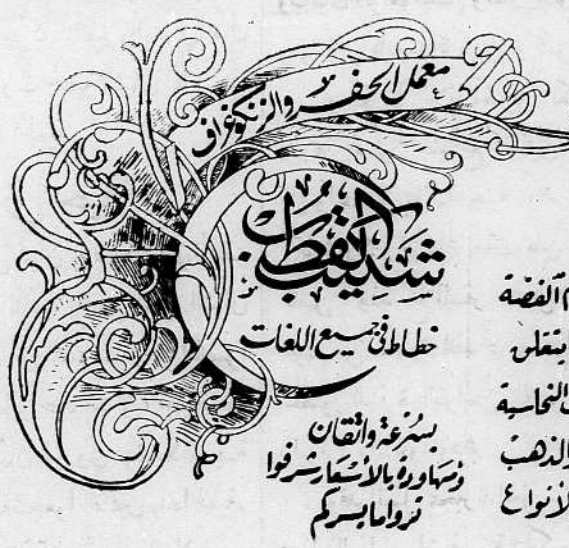 معمل الحفر والزنكوغراف
شكيب القطب
خطاط في جميع اللغات
بسرعة واتقان
ومهاودة بالأسعار شرفوا
تروا ما يسركم
الفضة
يتعلق
النحاسية
والذهب
الأنواع